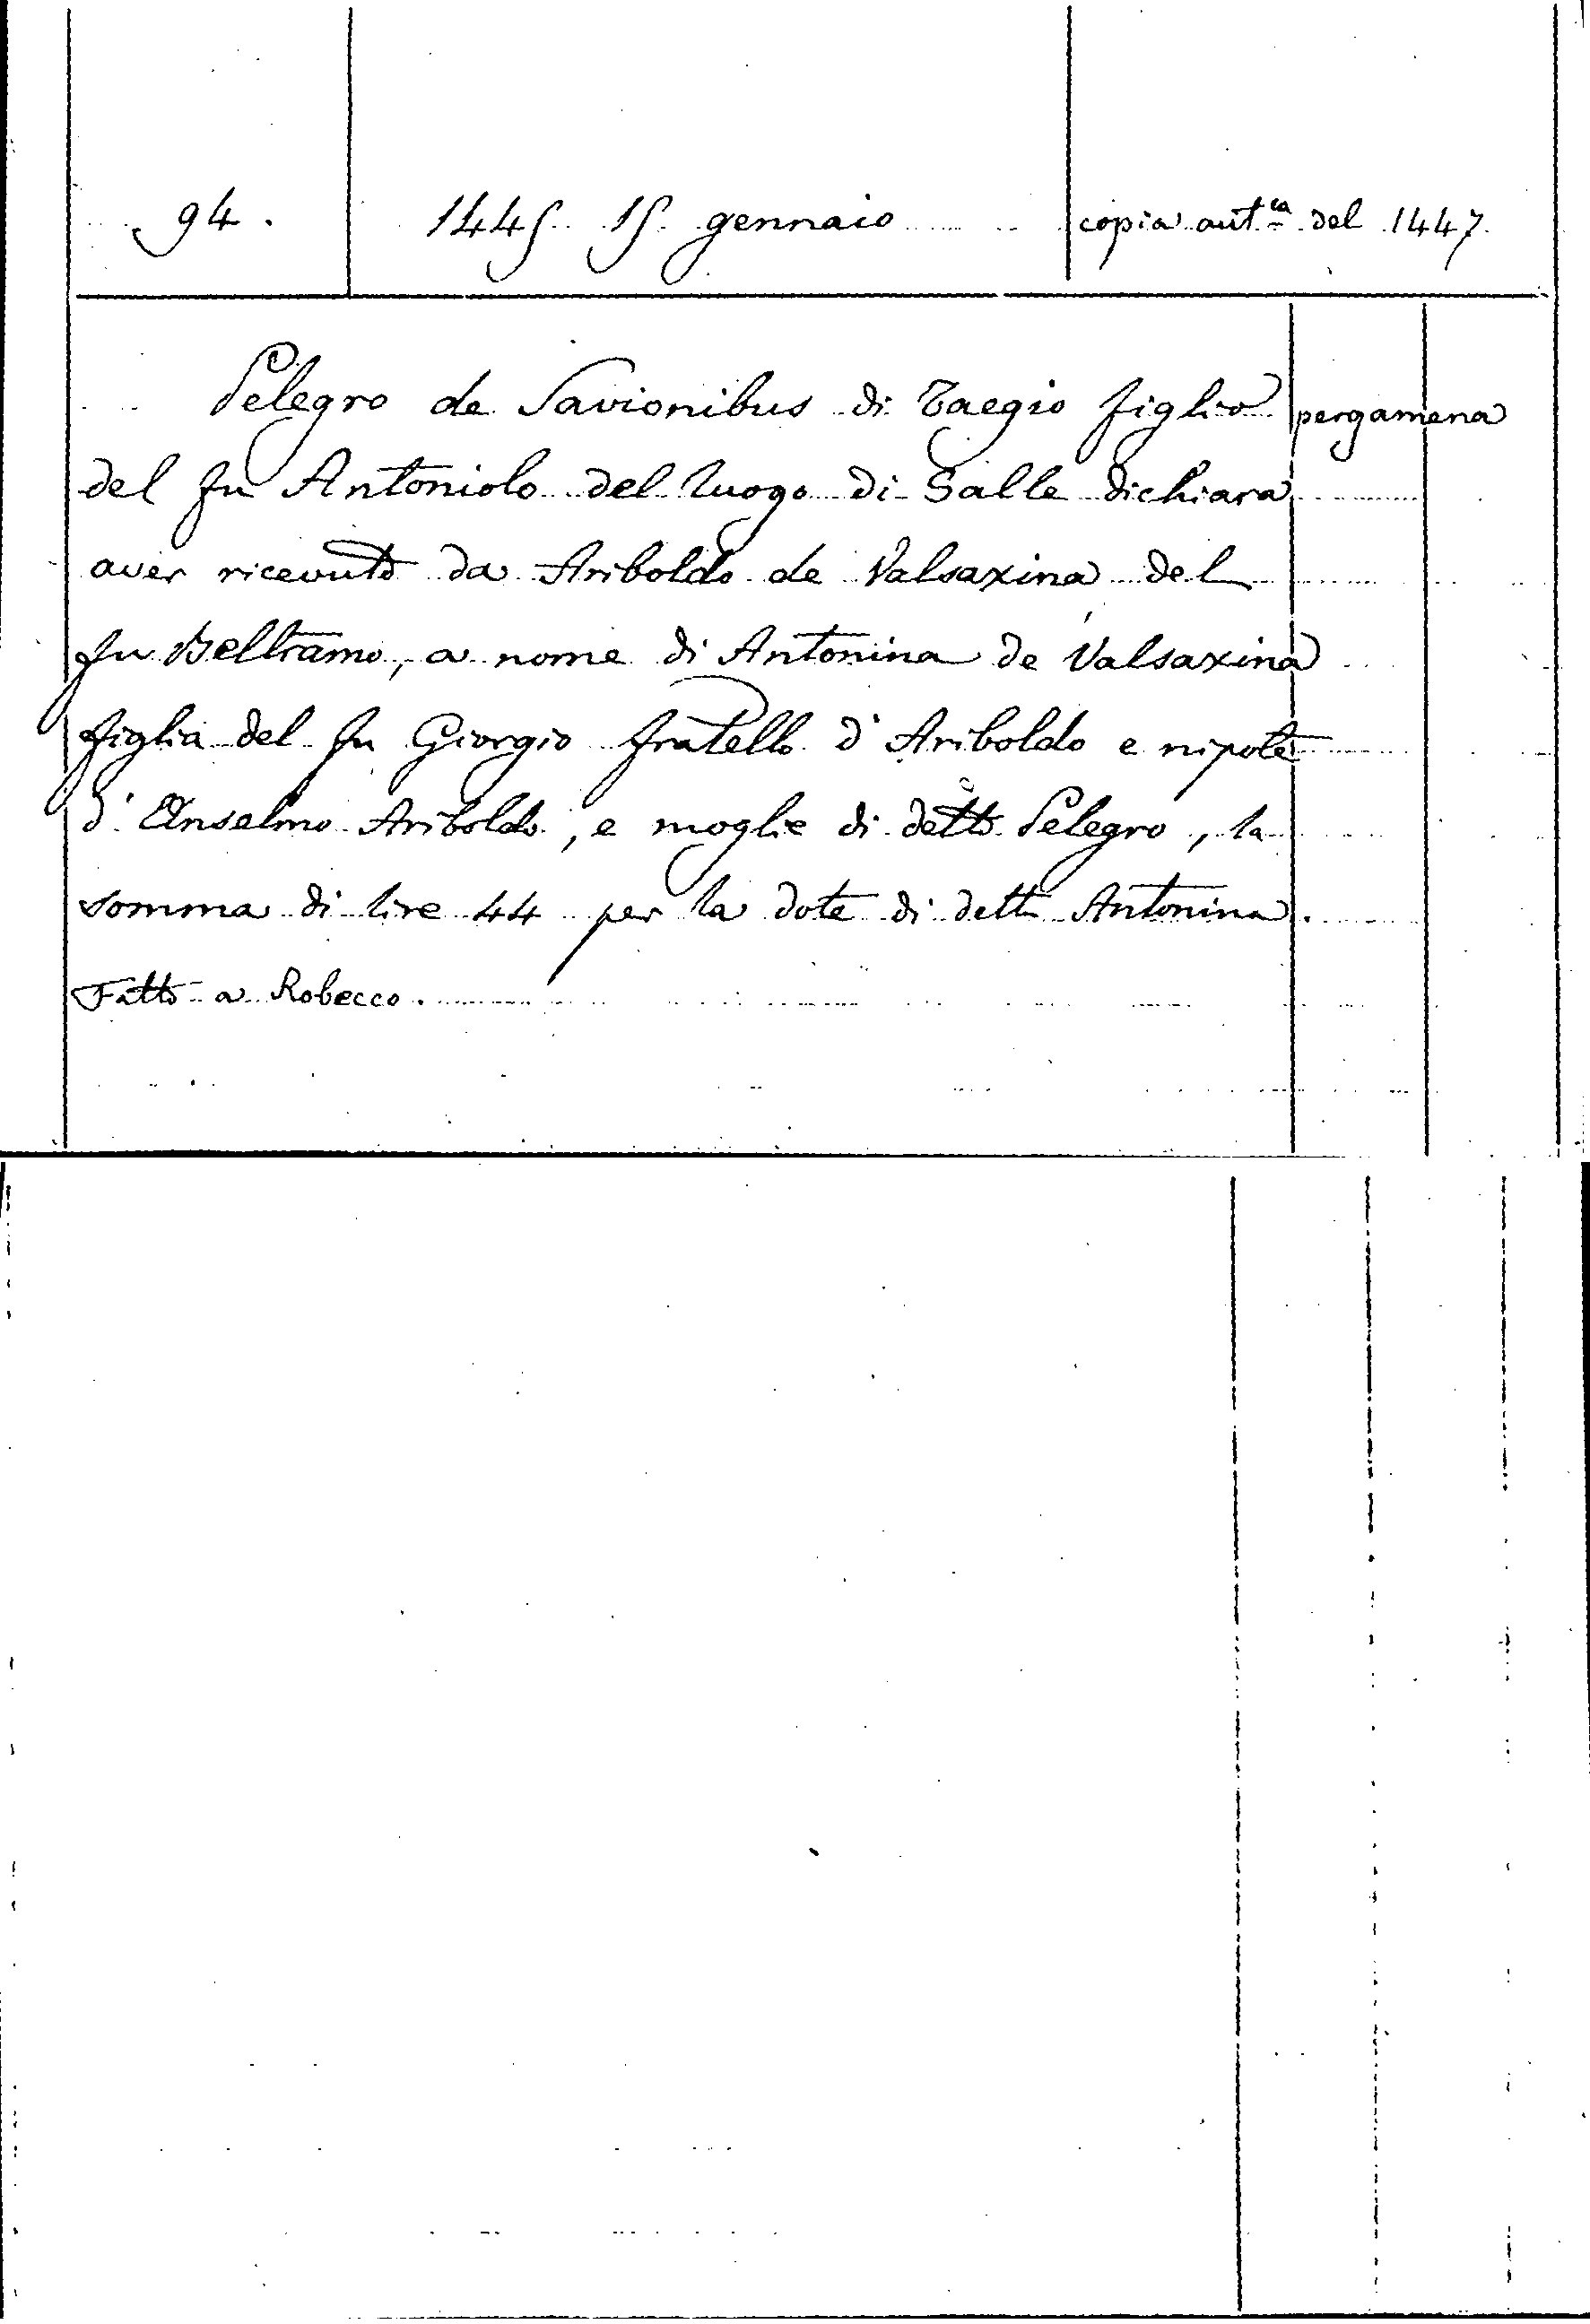 94. 1445 15 gennaio copia aut.ca del 1447
Pelegro de Savionibus di Taegio figlio pergamena
del fu Antoniolo del luogo di Salle dichiara
aver ricevuto da Ariboldo de Valsaxina del
fu Beltramo, a nome di Antonina de Valsaxina
figlia del fu Giorgio fratello d'Ariboldo e nipote
d'Anselmo Ariboldo, e moglie di detto Pelegro, la
somma di lire 44 per la dote di detta Antonina.
Fatto a Robecco.